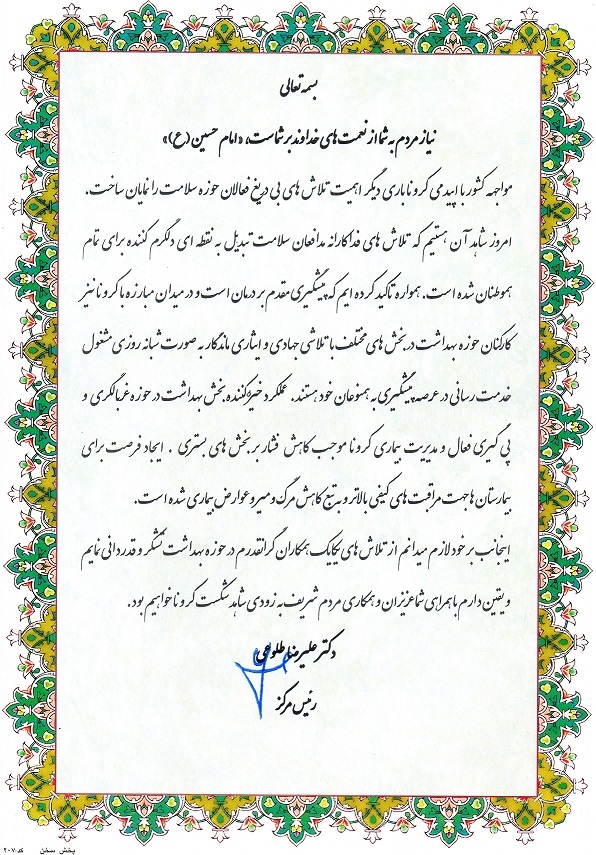 بسمه تعالی
نیاز مردم به شما از نعمت های خداوند بر شماست، «امام حسین (ع)»
مواجهه کشور با اپیدمی کرونا باری دیگر اهمیت تلاش های بی دریغ فعالان حوزه سلامت را نمایان ساخت.
امروز شاهد آن هستیم که تلاش های فداکارانه مدافعان سلامت تبدیل به نقطه ای دلگرم کننده برای تمام
هموطنان شده است. همواره تاکید کرده ایم که پیشگیری مقدم بر درمان است و در میدان مبارزه با کرونا نیز
کارکنان حوزه بهداشت در بخش های مختلف با تلاشی جهادی و ایثاری ماندگار به صورت شبانه روزی مشغول
خدمت رسانی در عرصه پیشگیری به همنوعان خود هستند. عملکرد خیره کننده بخش بهداشت در حوزه غربالگری و
پی گیری فعال و مدیریت بیماری کرونا موجب کاهش فشار بر بخش های بستری . ایجاد فرصت برای
بیمارستان ها جهت مراقبت های کیفی بالاتر و به تبع کاهش مرگ و میر و عوارض بیماری شده است.
اینجانب بر خود لازم میدانم از تلاش های یکایک همکاران گرانقدرم در حوزه بهداشت تشکر و قدردانی نمایم
و یقین دارم با همراهی شما عزیزان و همکاری مردم شریف به زودی شاهد شکست کرونا خواهیم بود.
دکتر علیرضا طلوعی
رئیس مرکز
پخش سخن کد ۲۰۷